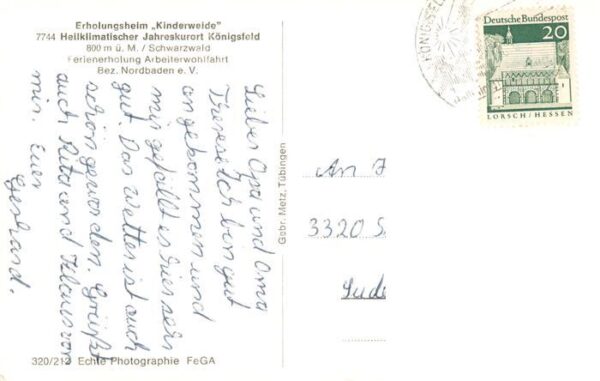 Erholungsheim „Kinderweide"
7744 Heilklimatischer Jahreskurort Königsfeld
800 m ü. M. / Schwarzwald
Ferienerholung Arbeiterwohlfahrt
Bez. Nordbaden e. V.
Lieber Opa und Oma
Therese Ich bin gut
angekommen und
mir gefällt es hier sehr
gut. Das wetter ist auch
schön geworden. Grüßt
auch Rita und Klaus von
mir. Euer
Gerhard.
320/212 Echte Photographie FeGA
Gebr. Metz, Tübingen
KÖNIGSFEL
Deutsche Bundespost
20
LORSCH / HESSEN
An
3320 S
Lude